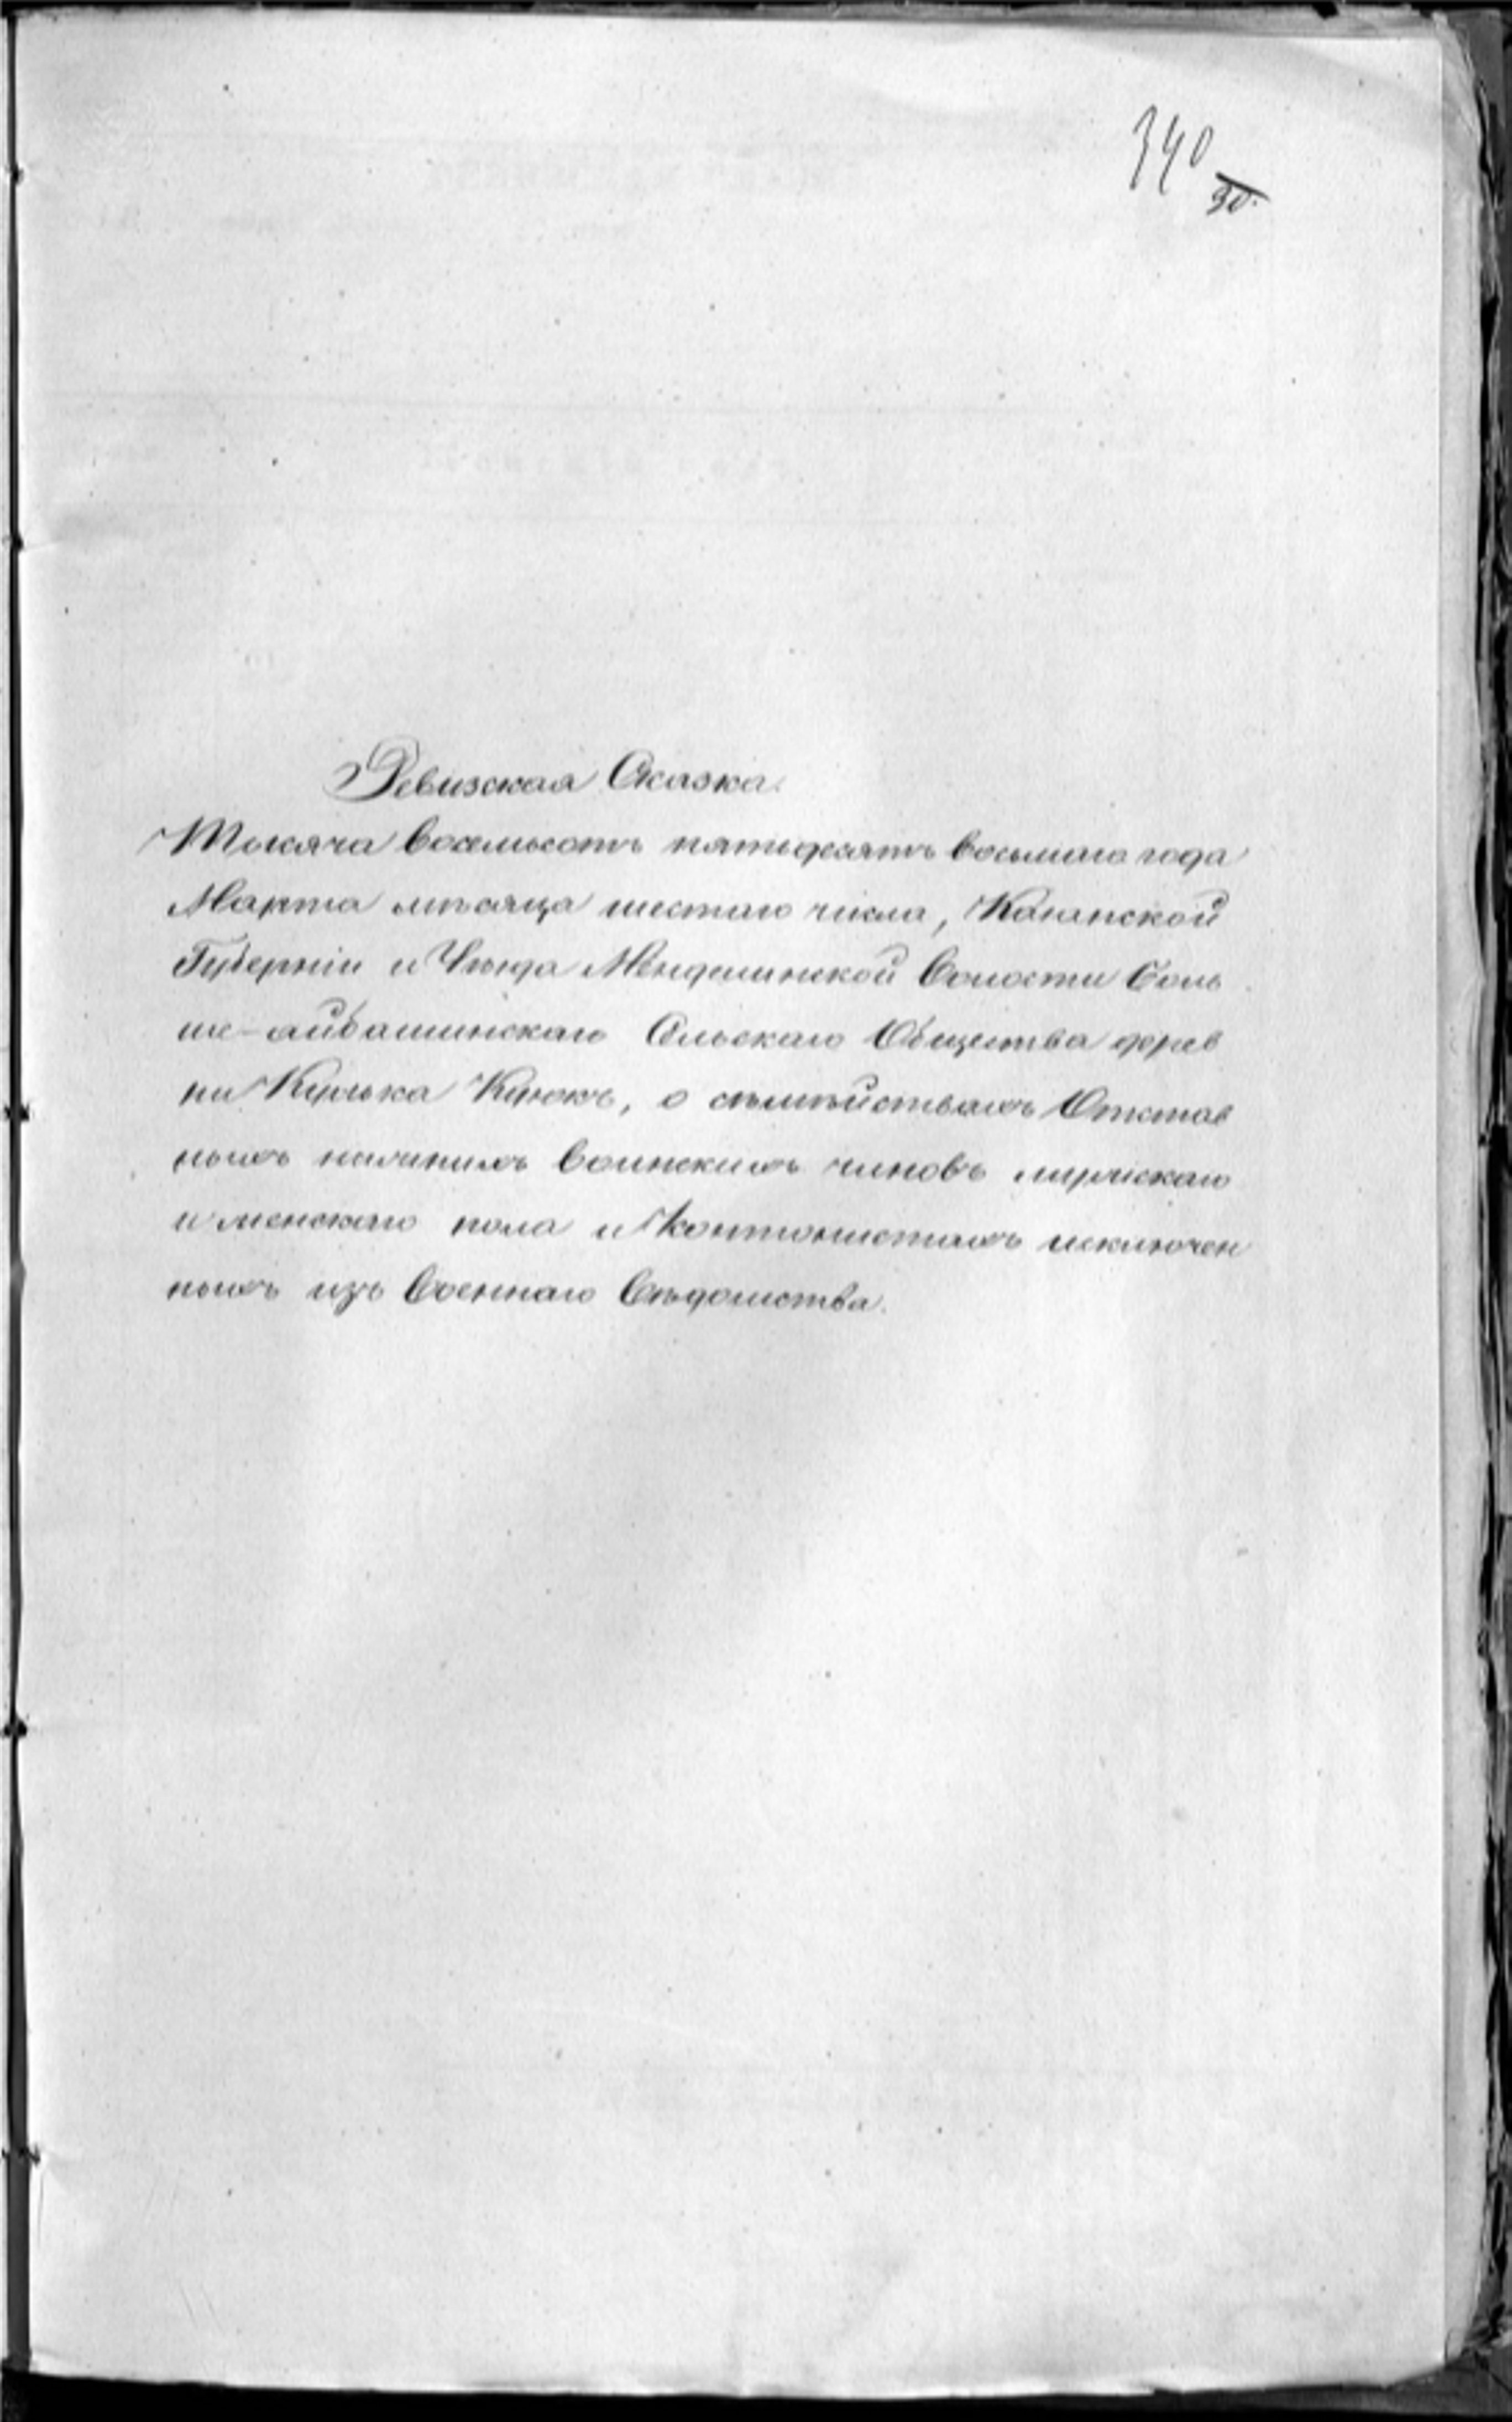 340
30.
Ревизская Сказка.
Тысяча восемьсотъ пятьдесятъ восьмаго года
Марта мѣсяца шестаго числа, Казанской
Губерніи и Уѣзда Менделинской волости Боль
ше-айбашинскаго Сельскаго Общества дерев
ни Кулька Куюкъ, о семѣйствахъ Отстав
ныхъ нижнихъ воинскихъ чиновъ мужскаго
и женскаго пола и Контонистахъ исключен
ныхъ изъ Военнаго Вѣдомства.